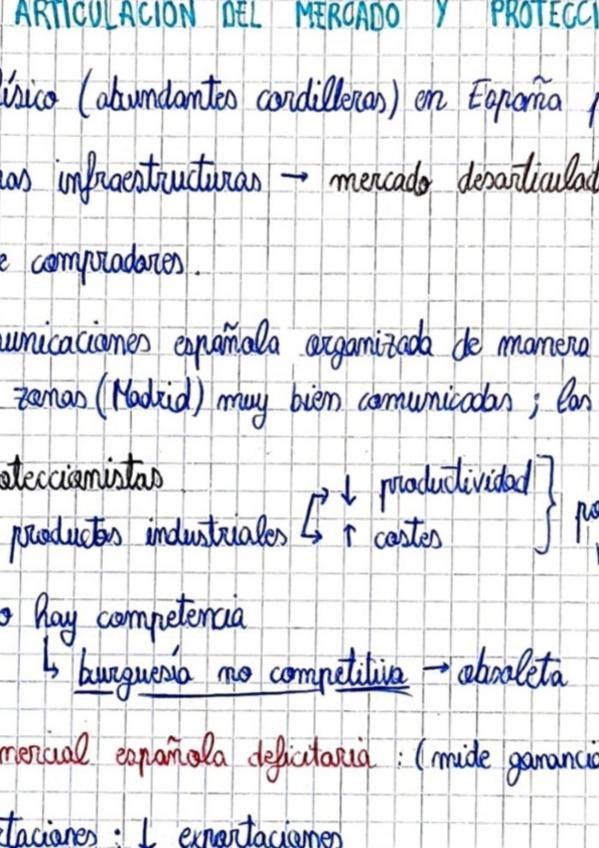 ARTICULACIÓN DEL MERCADO Y PROTECCI
ísico (abundantes cordilleras) en España p
as infraestructuras → mercado desarticulad
e compradores.
unicaciones española organizada de manera
zonas (Madrid) muy bien comunicadas ; las
oteccionistas
productos industriales ↓ productividad
↑ costes
po
o hay competencia
↳ burguesía no competitiva → obsoleta
mercial española deficitaria : (mide ganancia
rtaciones : ↓ exportaciones